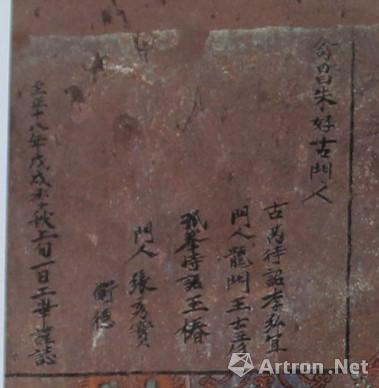 禽昌朱好古門人
古芮待詔李弘宜
門人龍門王士彦
孤峯待詔王椿
門人張秀實
衛德
至正十八年戊戌季秋上旬一日工畢謹誌
Artron.Net